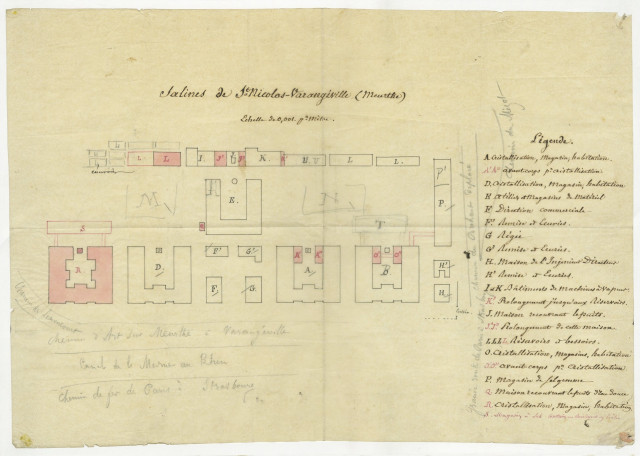 Salines de St. Nicolas-Varangéville (Meurthe)
Echelle de 0,001 pr Mètre.
Légende.
A. Cristallisation, Magasin, habitation.
avant corps pr cristallisation
D. Cristallisation, Magasin, habitation
H. Atelier, Magasins de Matériel
F. Direction commerciale
F' Remise et Ecuries.
G Régie
G' Remise et Ecuries.
H. Maison de l'Ingénieur Directeur
H' Remise et Ecuries.
I et K Bâtiments de Machines à Vapeur
K' Prolongement jusqu'aux Réservoirs.
J. Maison recouvrant le puits.
J' J'. Prolongement de cette maison
LLLL Réservoirs et bessoirs.
O. Cristallisation, Magasins, habitation
avant corps pr Cristallisation
P. Magasin de Selgemme
Q Maison recouvrant le puits d'eau douce
R Cristallisation, Magasin, habitation
S. Magasin à Sel
L. L. I. J' J J' K. K' M. L L.
P' P.
N N
E. T
S
R. D. F' G' F G A K' K' B O' O' H' H
Chemin d'Art sur Meurthe à Varangéville
Canal de la Marne au Rhin
Chemin de fer de Paris à Strasbourg